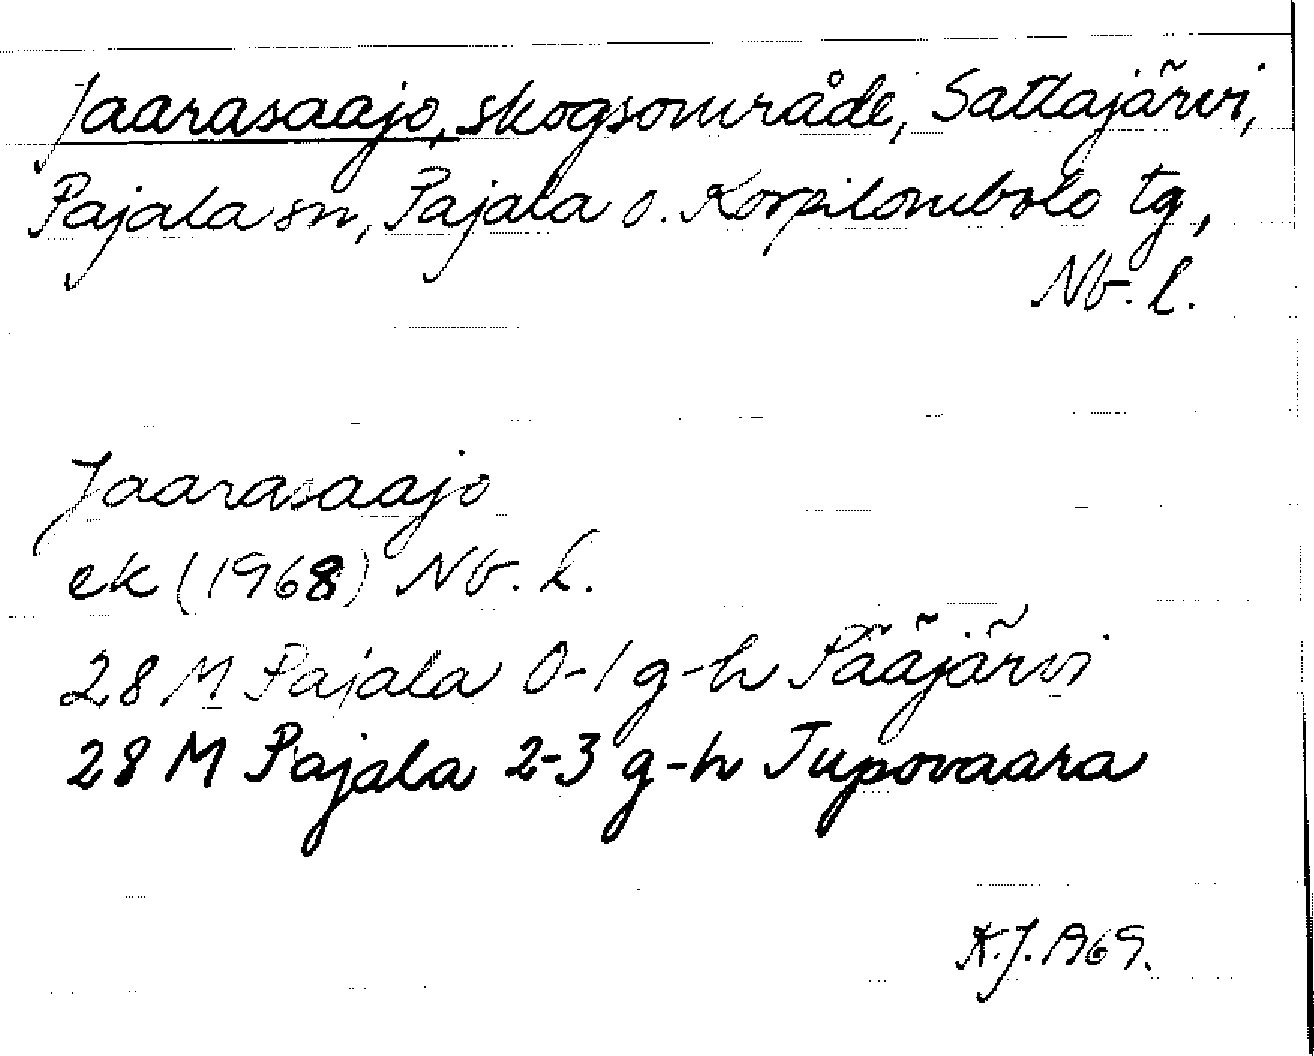 Jaarasaajo, skogsområde, Sattajärvi,
Pajala sn, Pajala o. Korpilombolo tg,
Nb. l.
Jaarasaajo
ek (1968) Nb. l.
28 M Pajala 0-1 g-h Pääjärvi
28 M Pajala 2-3 g-h Tupovaara
K.J. 1969.